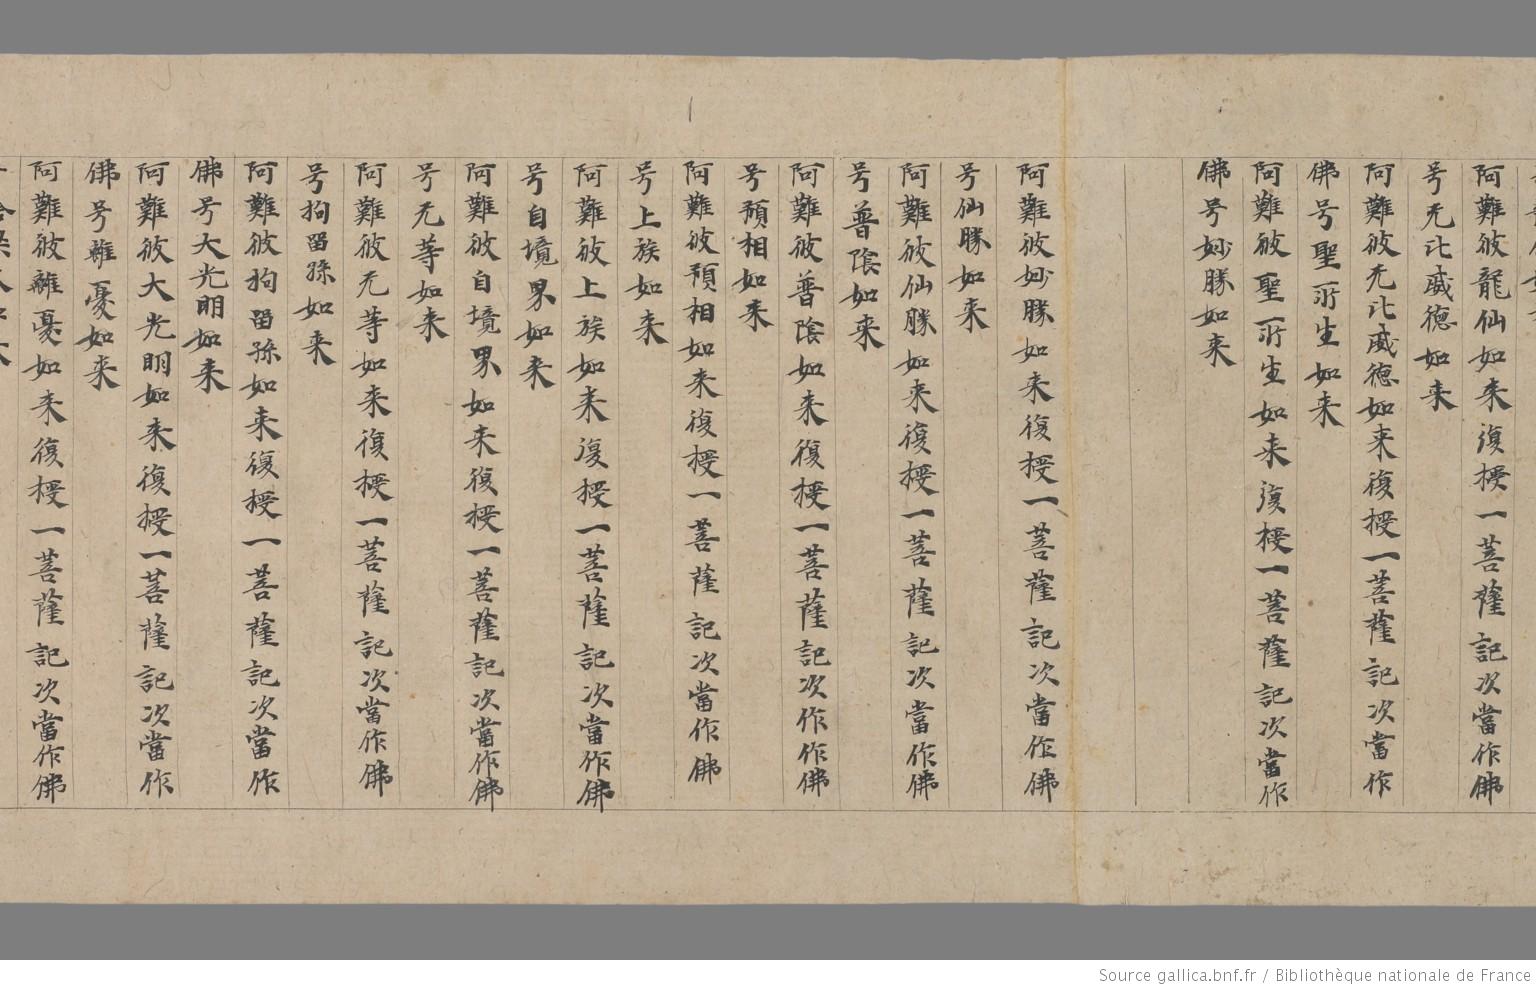 阿難彼龍仙如来復授一菩薩記次當作佛
号无比威德如来
阿難彼无比威德如来復授一菩薩記次當作
佛号聖所生如来
阿難彼聖所生如来復授一菩薩記次當作
佛号妙勝如来
阿難彼妙勝如来復授一菩薩記次當作佛
号仙勝如来
阿難彼仙勝如来復授一菩薩記次當作佛
号普陰如来
阿難彼普陰如来復授一菩薩記次作作佛
号預相如来
阿難彼預相如来復授一菩薩記次當作佛
号上族如来
阿難彼上族如来復授一菩薩記次當作佛
号自境界如来
阿難彼自境界如来復授一菩薩記次當作佛
号无等如来
阿難彼无等如来復授一菩薩記次當作佛
号拘留孫如来
阿難彼拘留孫如来復授一菩薩記次當作
佛号大光明如来
阿難彼大光明如来復授一菩薩記次當作
佛号離憂如来
阿難彼離憂如来復授一菩薩記次當作佛
Source gallica.bnf.fr / Bibliothèque nationale de France